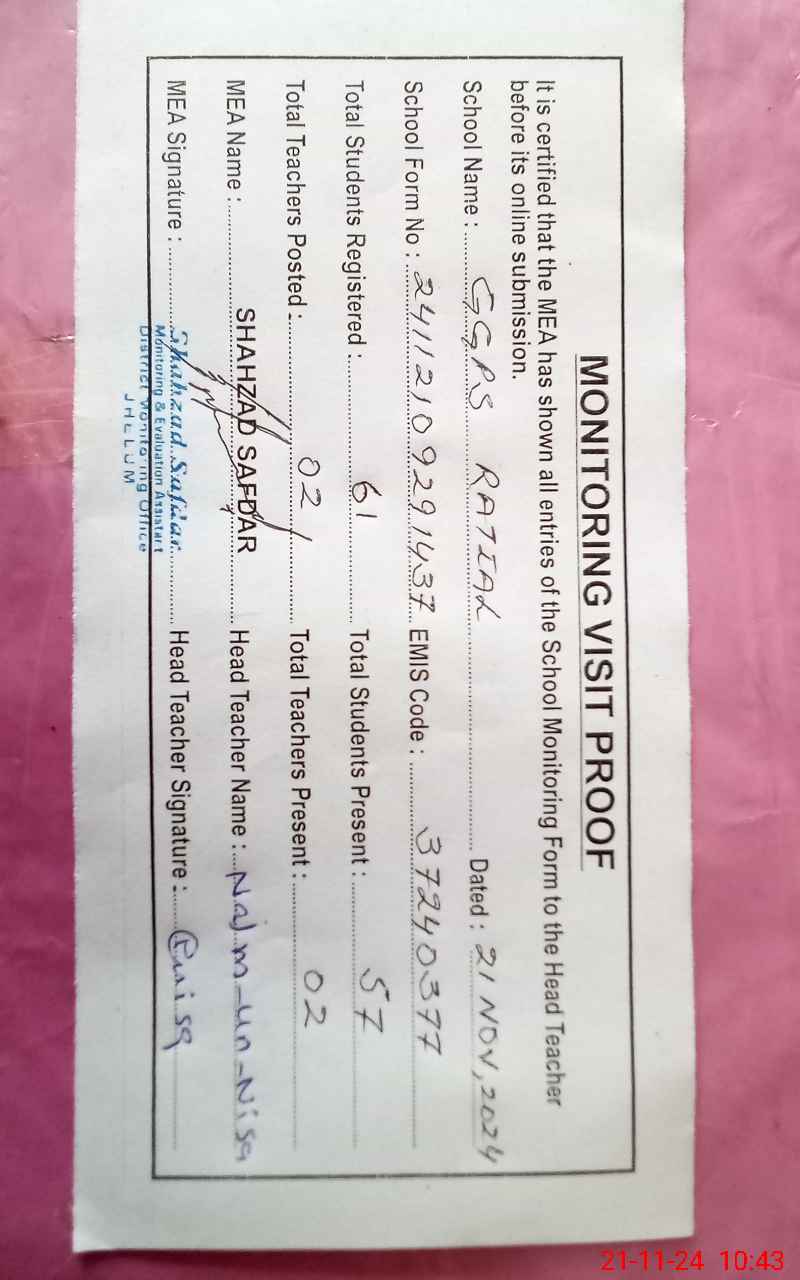 MONITORING VISIT PROOF
It is certified that the MEA has shown all entries of the School Monitoring Form to the Head Teacher
before its online submission.
School Name : GGPS RATIAL Dated : 21 NOV, 2024
School Form No : 24112109291437 EMIS Code : 37240377
Total Students Registered : 61 Total Students Present : 57
Total Teachers Posted : 02 Total Teachers Present : 02
MEA Name : SHAHZAD SAFDAR Head Teacher Name : Najm-un-Nisa
MEA Signature : Shahzad Safdar Head Teacher Signature :
Monitoring & Evaluation Assistant
District Monitoring Office
JHELUM
21-11-24 10:43